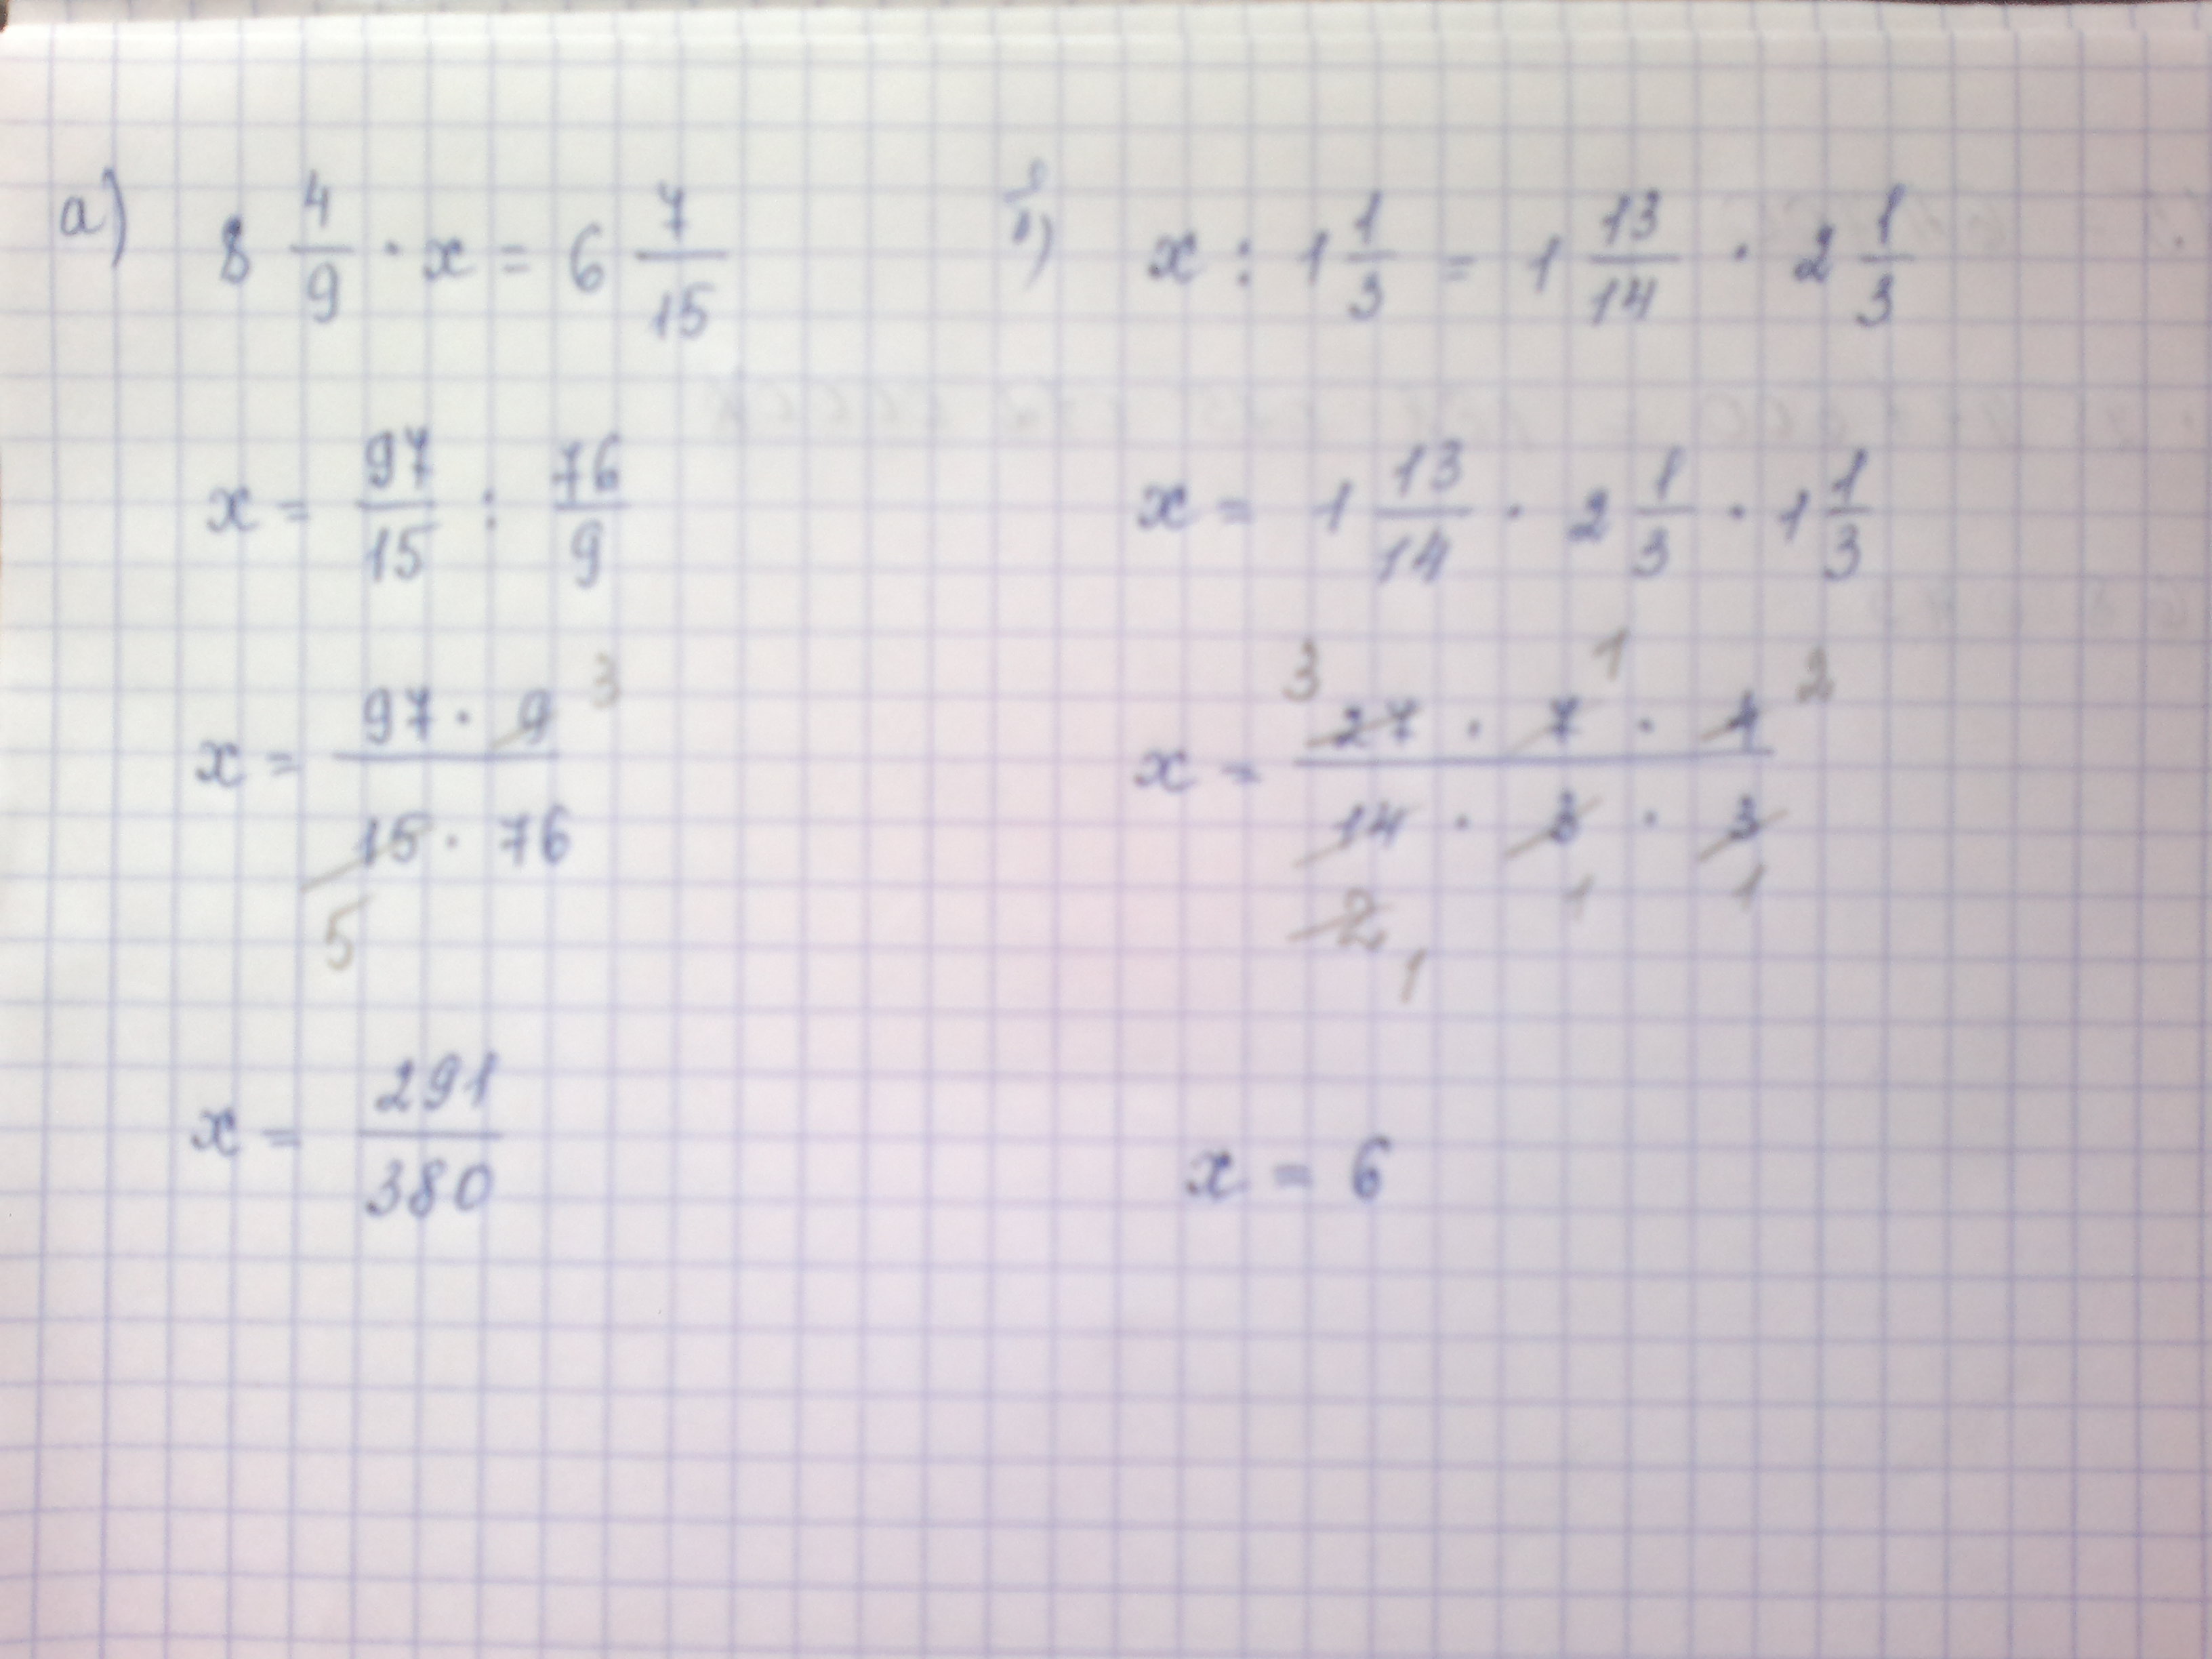 а) 8 4/9 · x = 6 7/15
x = 97/15 : 76/9
x = 97 · 9 3 / 15 · 76
5
x = 291/380
x : 1 1/3 = 1 13/14 · 2 1/3
x = 1 13/14 · 2 1/3 · 1 1/3
3 1 2
x = 27 · 7 · 4 / 14 · 3 · 3
2 1 1
1
x = 6